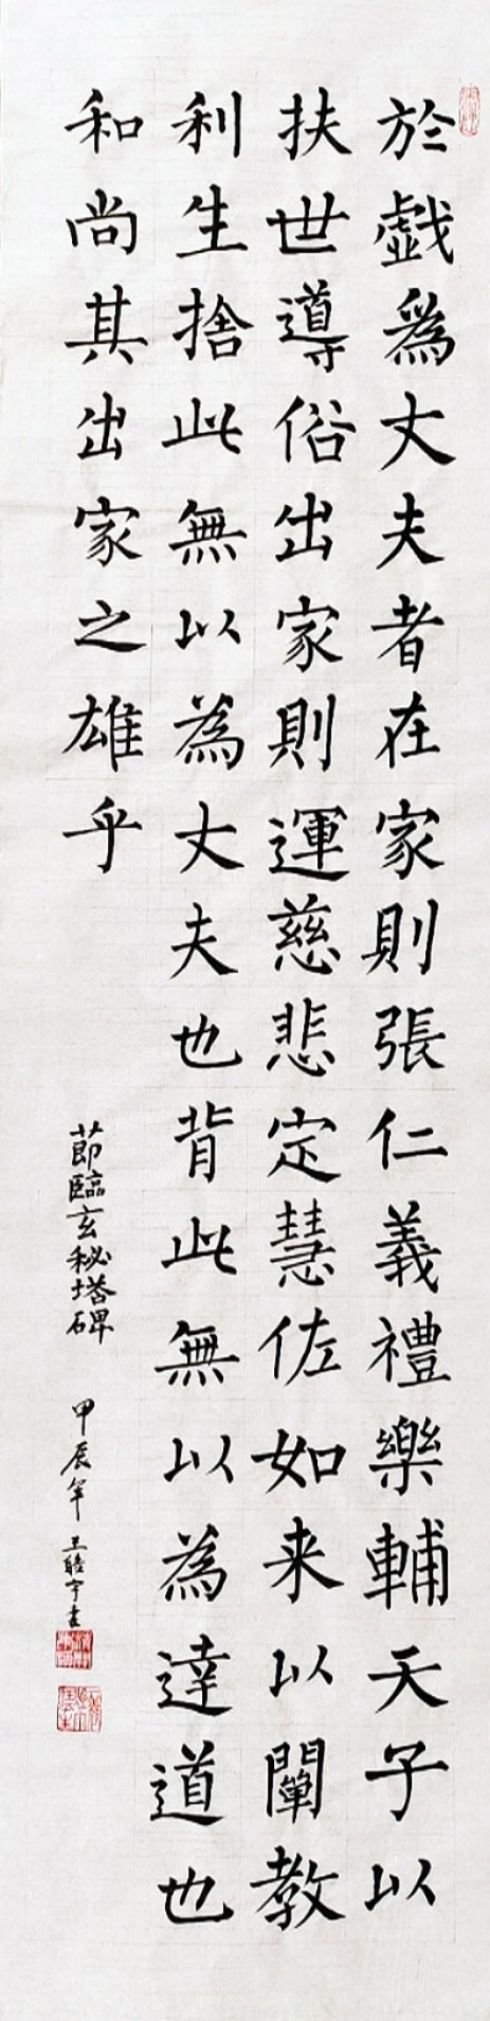 於戲為丈夫者在家則張仁義禮樂輔天子以
扶世導俗出家則運慈悲定慧佐如来以闡教
利生捨此無以為丈夫也背此無以為達道也
和尚其出家之雄乎
節臨玄秘塔碑
甲辰年 王睦宇書